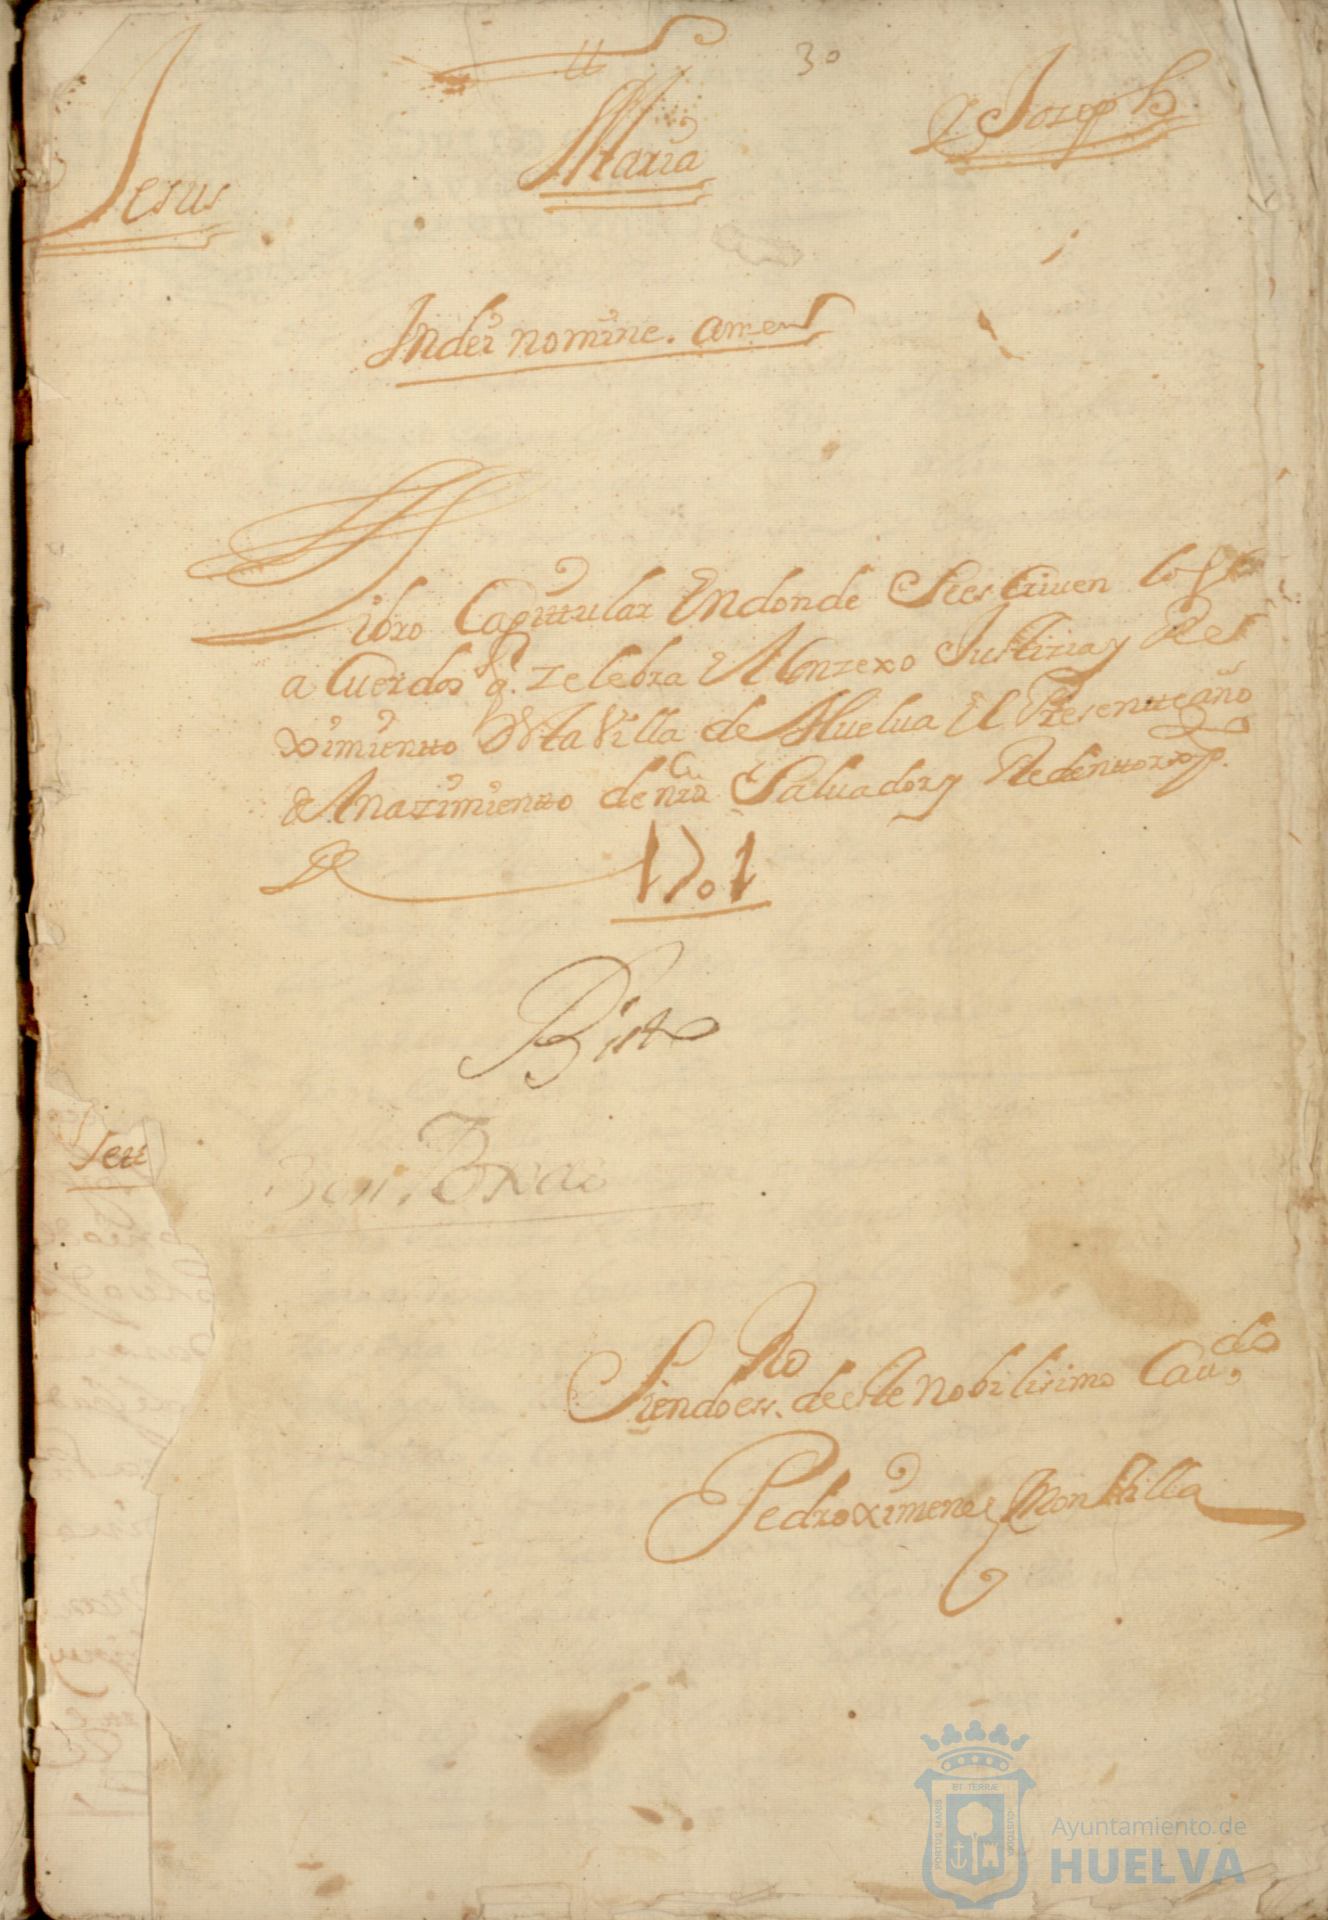 30
Jesus Maria Y Joseph
Indei nomine. amen
Libro Capittular Endonde Seescriven los
a Cuerdos q. zelebra El Conzexo Justizia y Re
ximientto Desta Villa de Huelua El Presentte año
del nazimientto de nro Salvador y Redenttor
1701
Bisto
Siendo essno. deeste nobilisimo Caudo,
Pedro ximenes Montilla
BI TERRÆ
PORTUS MARIS
CUSTODIA
Ayuntamiento de
HUELVA